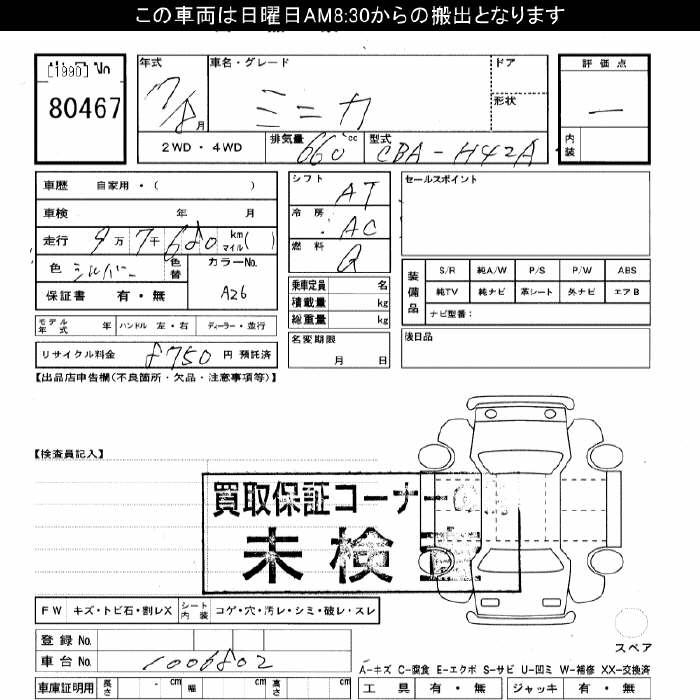 この車両は日曜日AM8:30からの搬出となります
[1990] No
80467
年式
17/8月
車名・グレード
ミニカ
ドア
形状
評価点
―
内装
2WD・4WD
排気量
660cc
型式
CBA-H42A
車歴 自家用・( )
車検 年 月
走行 9万7千680 km マイル( )
色 シルバー 色替
カラーNo.
A26
保証書 有・無
モデル年式 年 ハンドル 左・右 ディーラー・並行
リサイクル料金 8750 円 預託済
シフト AT
冷房 AC
燃料 G
乗車定員 名
積載量 kg
総重量 kg
名変期限
月 日
セールスポイント
装備品
S/R 純A/W P/S P/W ABS
純TV 純ナビ 革シート 外ナビ エアB
ナビ型番:
後日品
【出品店申告欄(不良箇所・欠品・注意事項等)】
【検査員記入】
買取保証コーナー
未検
FW キズ・トビ石・割レX シート内装 コゲ・穴・汚レ・シミ・破レ・スレ
登録No.
車台No. 1006802
車庫証明用 長さ cm 幅 cm 高さ cm
スペア
A-キズ C-腐食 E-エクボ S-サビ U-凹ミ W-補修 XX-交換済
工具 有・無 ジャッキ 有・無